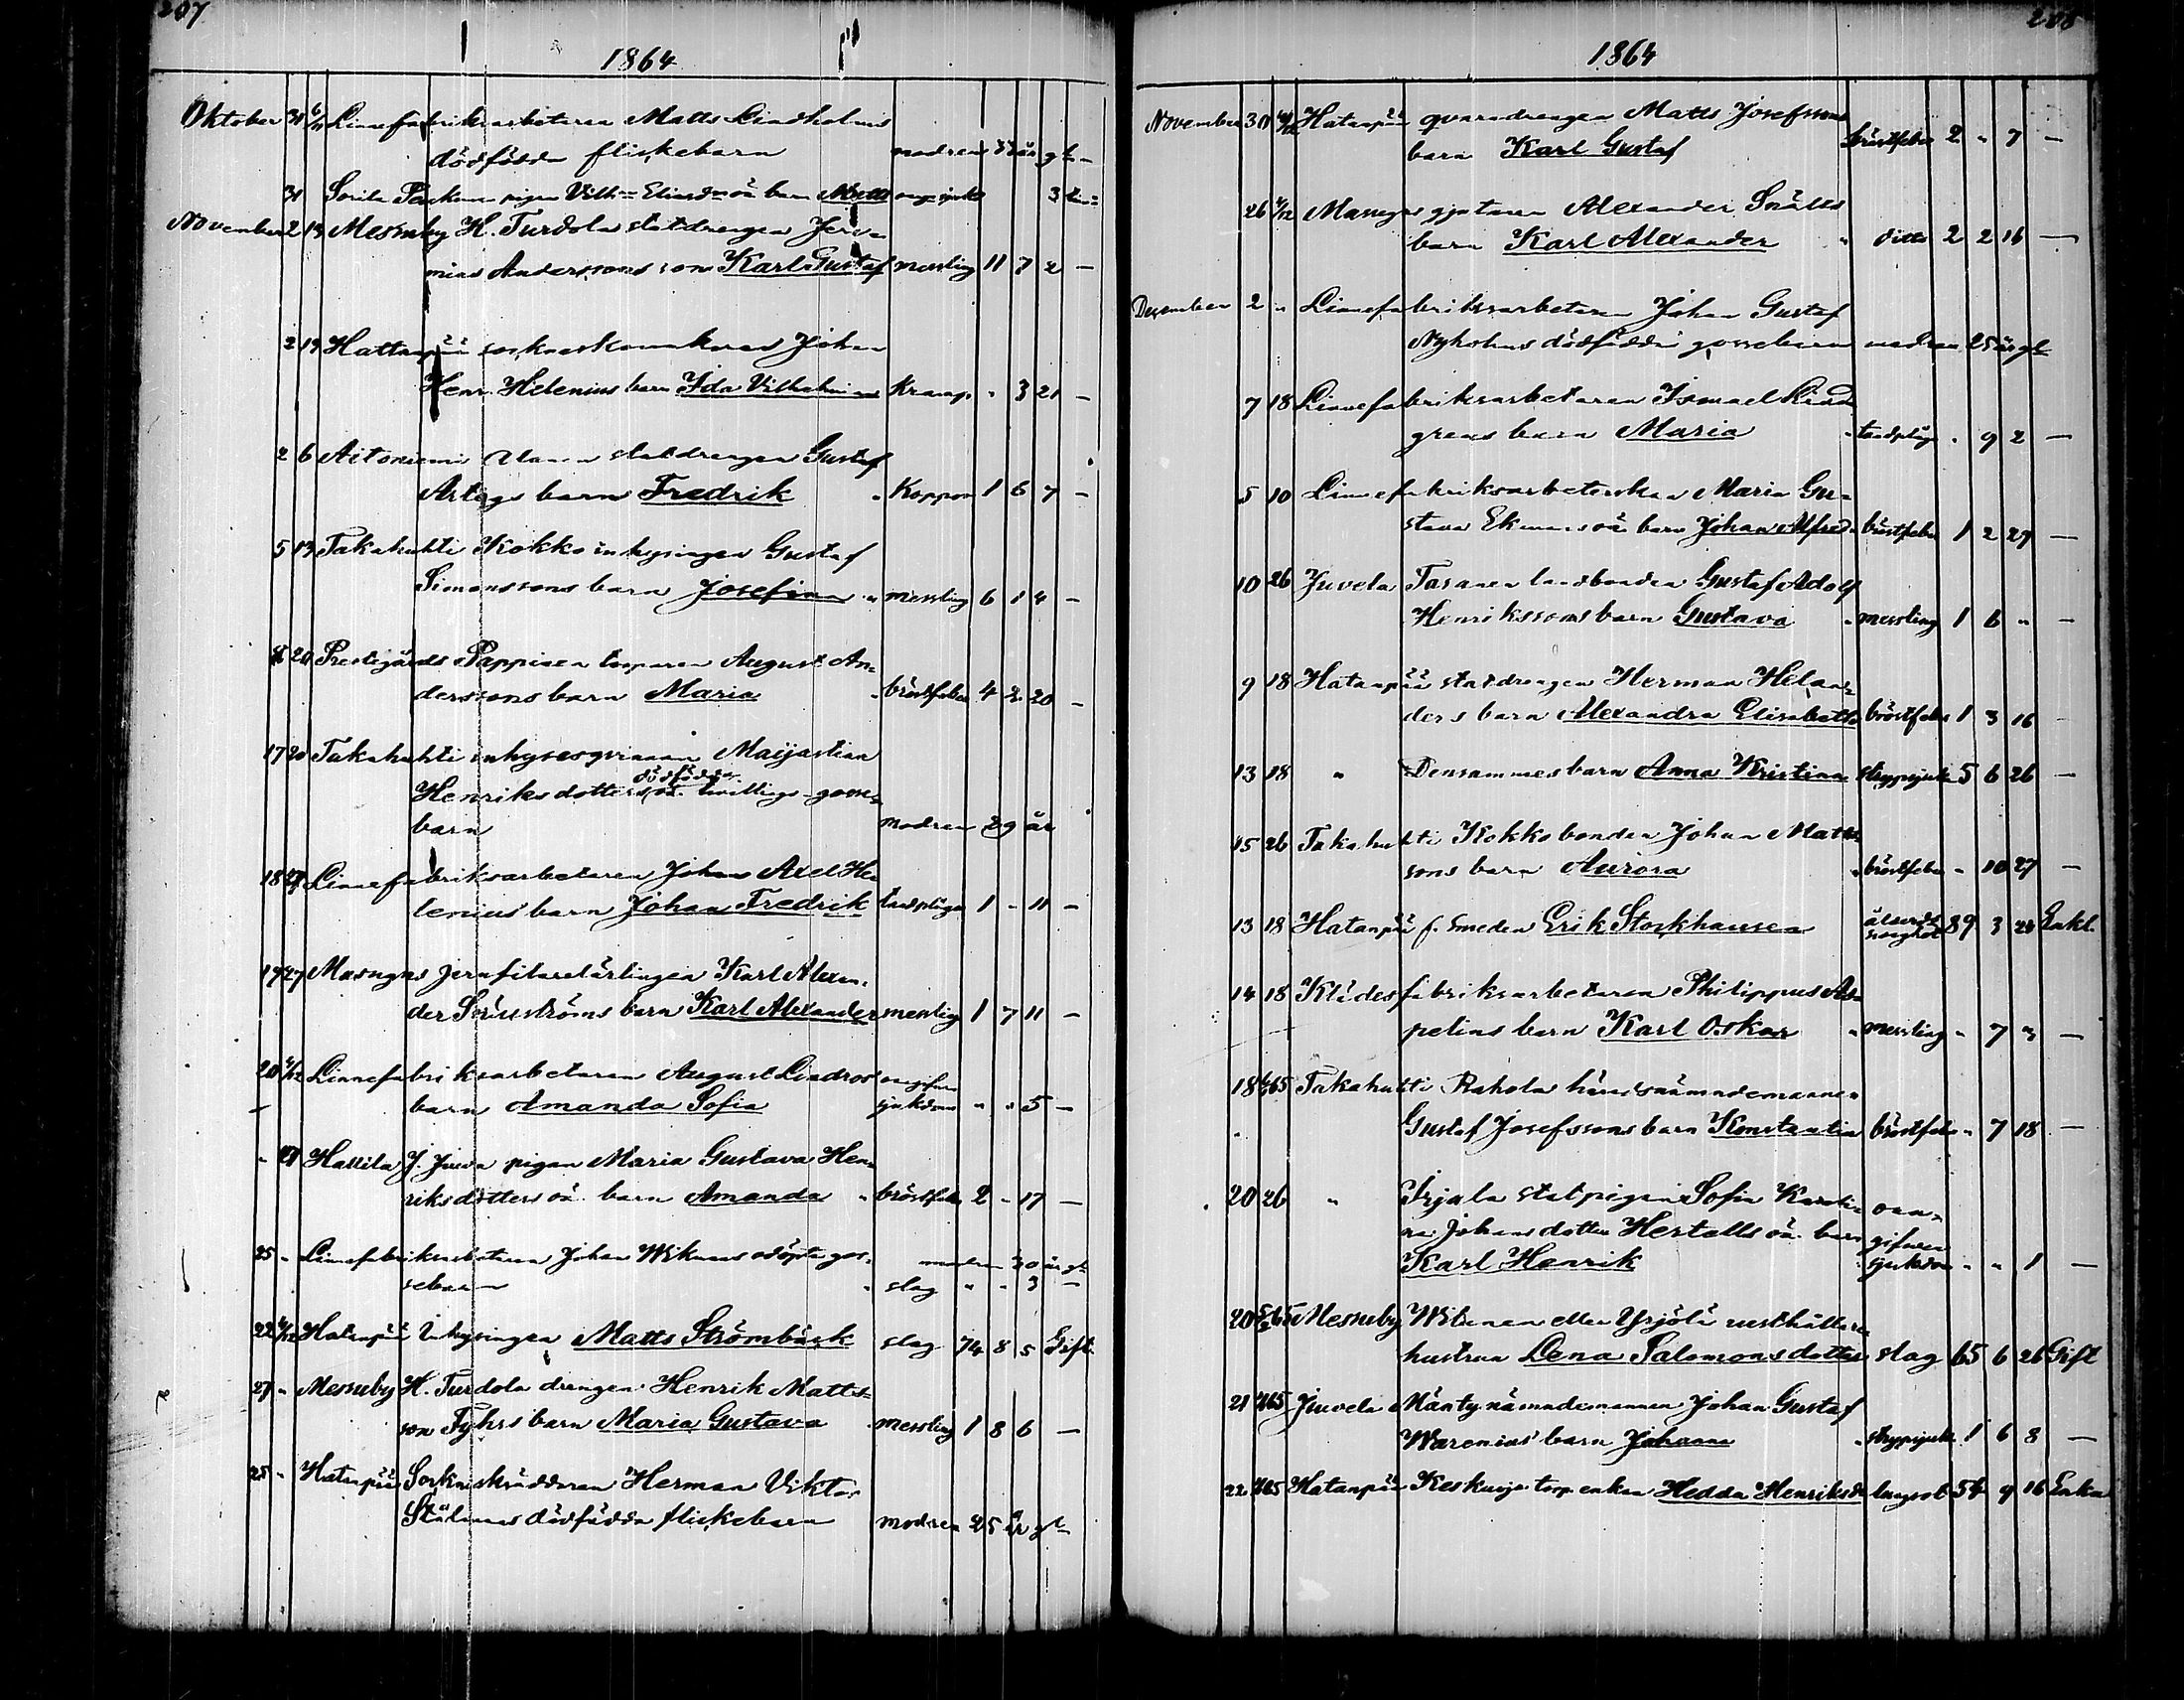 207
1864
Oktober 31 6/11 Linnefabriksarbetaren Matts Lindholms
dödfödda flickebarn modren 33 år gl. -
31 Sorila pigan Vilh:a Eliasd:rs oä barn Matts 3
November 2 13 Messuby H. Turdola statdrengen Jere-
mias Anderssons son Karl Gustaf messling 11 7 2 -
2 19 Hattanpää sockneskomakaren Johan
Henr. Helenius barn Ida Vilhelmina Kramp " 3 21 -
2 6 Aitoniemi statdrengen Gustaf
Artigs barn Fredrik " Koppor 1 6 7 -
5 13 Takahuhti Kokko inhysingen Gustaf
Simonssons barn Josefina " messling 6 1 4 -
8 20 Prestgårds Pappisen torparen August An-
derssons barn Maria " bröstfeber 4 2 20 -
17 20 Takahuhti inhysesqvinnan Maijastina
Henriksdotters oä. dödfödda tvillings-gosse-
barn modren 29 år
18 27 Linnefabriksarbetaren Johan Axel He-
lenius barn Johan Fredrik tandplåga 1 - 11 -
19 27 Masugns jernfilarelärlingen Karl Alexan-
der barn Karl Alexander messling 1 7 11 -
20 4/12 Linnefabriksarbetaren August Lindroos oangifven
barn Amanda Sofia sjukdom " " 5 -
- 27 Hallila J. Juva pigan Maria Gustava Hen-
riksdotters oä. barn Amanda " bröstfeber 2 - 17 -
25 " Linnefabriksarbetaren Johan Wikmans odöpta gos- modren 30 år gl.
sebarn " slag " " 3 -
22 4/12 Hatanpää Inhysingen Matts Strömbäck slag 74 8 5 Gift.
27 " Messuby H. Turdola drengen Henrik Matts-
son Fyhrs barn Maria Gustava messling 1 8 6 -
25 " Hatanpää Sockneskräddaren Herman Viktor
Stålmans dödfödda flickebarn modren 25 år gl.
208
1864
November 30 4/12 Hatanpää qvarndrengen Matts Josefssons
barn Karl Gustaf bröstfeber 2 " 7 -
26 4/12 Masugns gjutaren Alexander Snälls
barn Karl Alexander " ditto 2 2 16 -
December 2 " Linnefabriksarbetaren Johan Gustaf
Nyholms dödfödda gossebarn modren 25 år gl.
7 18 Linnefabriksarbetaren Ismael Lind-
grens barn Maria " tandplåga " 9 2 -
5 10 Linnefabriksarbeterskan Maria Gu-
stava Ekmans oä barn Johan Alfred " bröstfeber 1 2 29 -
10 26 Juvela Tasanen landbonden Gustaf Adolf
Henrikssons barn Gustava " messling 1 6 " -
9 18 Hatanpää statdrengen Herman Helan-
ders barn Alexandra Elisabeth bröstfeber 1 3 16 -
13 18 " Densammes barn Anna Kristina strypsjuka 5 6 26 -
15 26 Takahuhti Kokko bonden Johan Matts-
sons barn Aurora " bröstfeber " 10 27 -
13 18 Hatanpää f. Smeden Erik Stockhausen ålderdomssvaghet 89 3 28 Enkl.
14 18 Klädesfabriksarbetaren Philippus As-
pelins barn Karl Oskar " messling " 7 3 -
18 65 Takahuhti Rahola häradsnämndemannen
Gustaf Josefssons barn Konstantin bröstfeber " 7 18 -
20 26 " Yrjola statpigan Sofia Karoli- oan-
na Johansdotter Hertells oä. barn gifven
Karl Henrik sjukdom " " 1 -
20 65 Messuby Witanen eller Yrjölä rusthållare
hustrun Lena Salomonsdotter slag 65 6 26 Gift
21 65 Juvela Mänty nämndemannen Johan Gustaf
Warenius' barn Johanna " strypsjuka 1 6 8 -
22 65 Hatanpää torpenkan Hedda Henriksdr lungsot 54 9 16 Enka